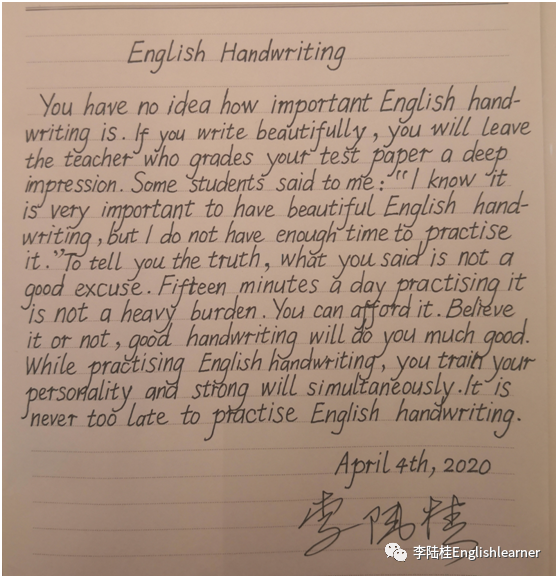 English Handwriting
You have no idea how important English hand-
writing is. If you write beautifully, you will leave
the teacher who grades your test paper a deep
impression. Some students said to me: "I know it
is very important to have beautiful English hand-
writing, but I do not have enough time to practise
it." To tell you the truth, what you said is not a
good excuse. Fifteen minutes a day practising it
is not a heavy burden. You can afford it. Believe
it or not, good handwriting will do you much good.
While practising English handwriting, you train your
personality and strong will simultaneously. It is
never too late to practise English handwriting.
April 4th, 2020
李陆桂
李陆桂Englishlearner